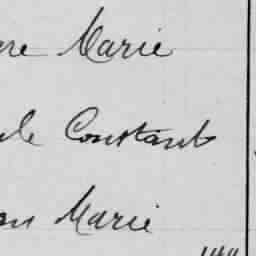 re Marie
le Constant
an Marie